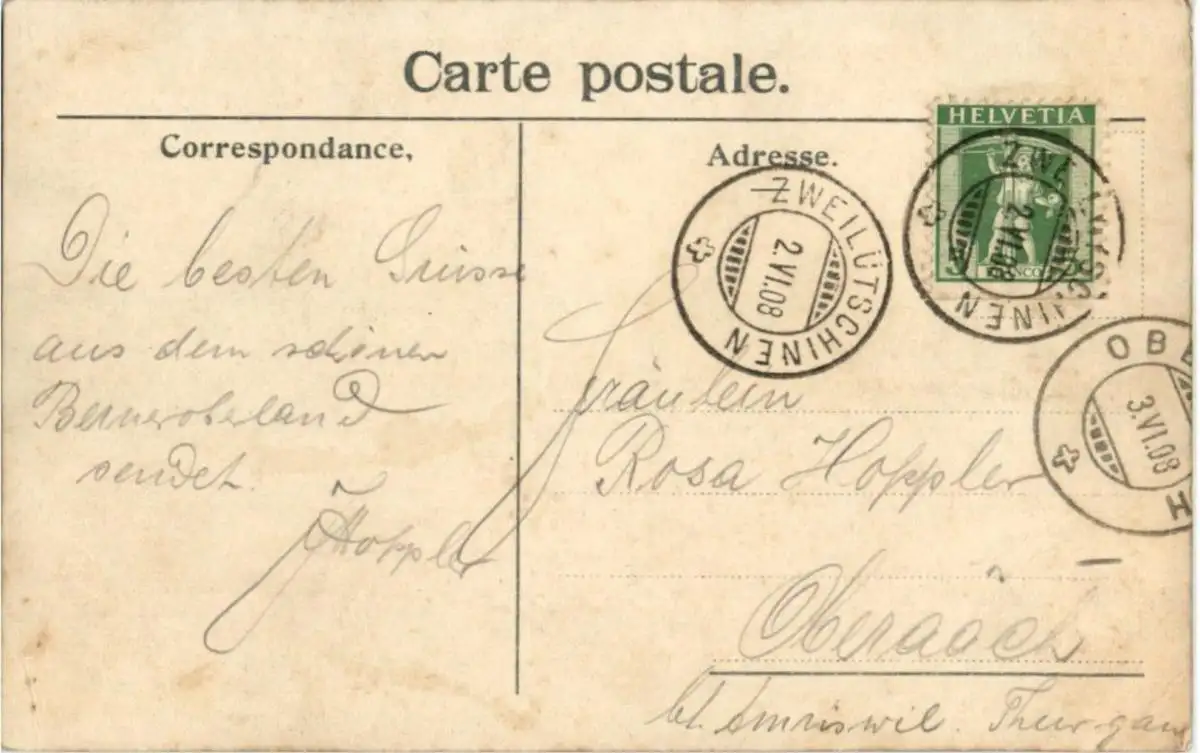 Carte postale.
Correspondance,
Adresse.
HELVETIA
FRANCO
ZWEILÜTSCHINEN
2.VI.08
ZWEILÜTSCHINEN
2.VI.08
OBE
3.VI.08
H
Die besten Grüsse
aus dem schönen
Berneroberland
sendet.
Hoppler
Fräulein
Rosa Hoppler
Oberaach
bt. Amriswil. Thurgau